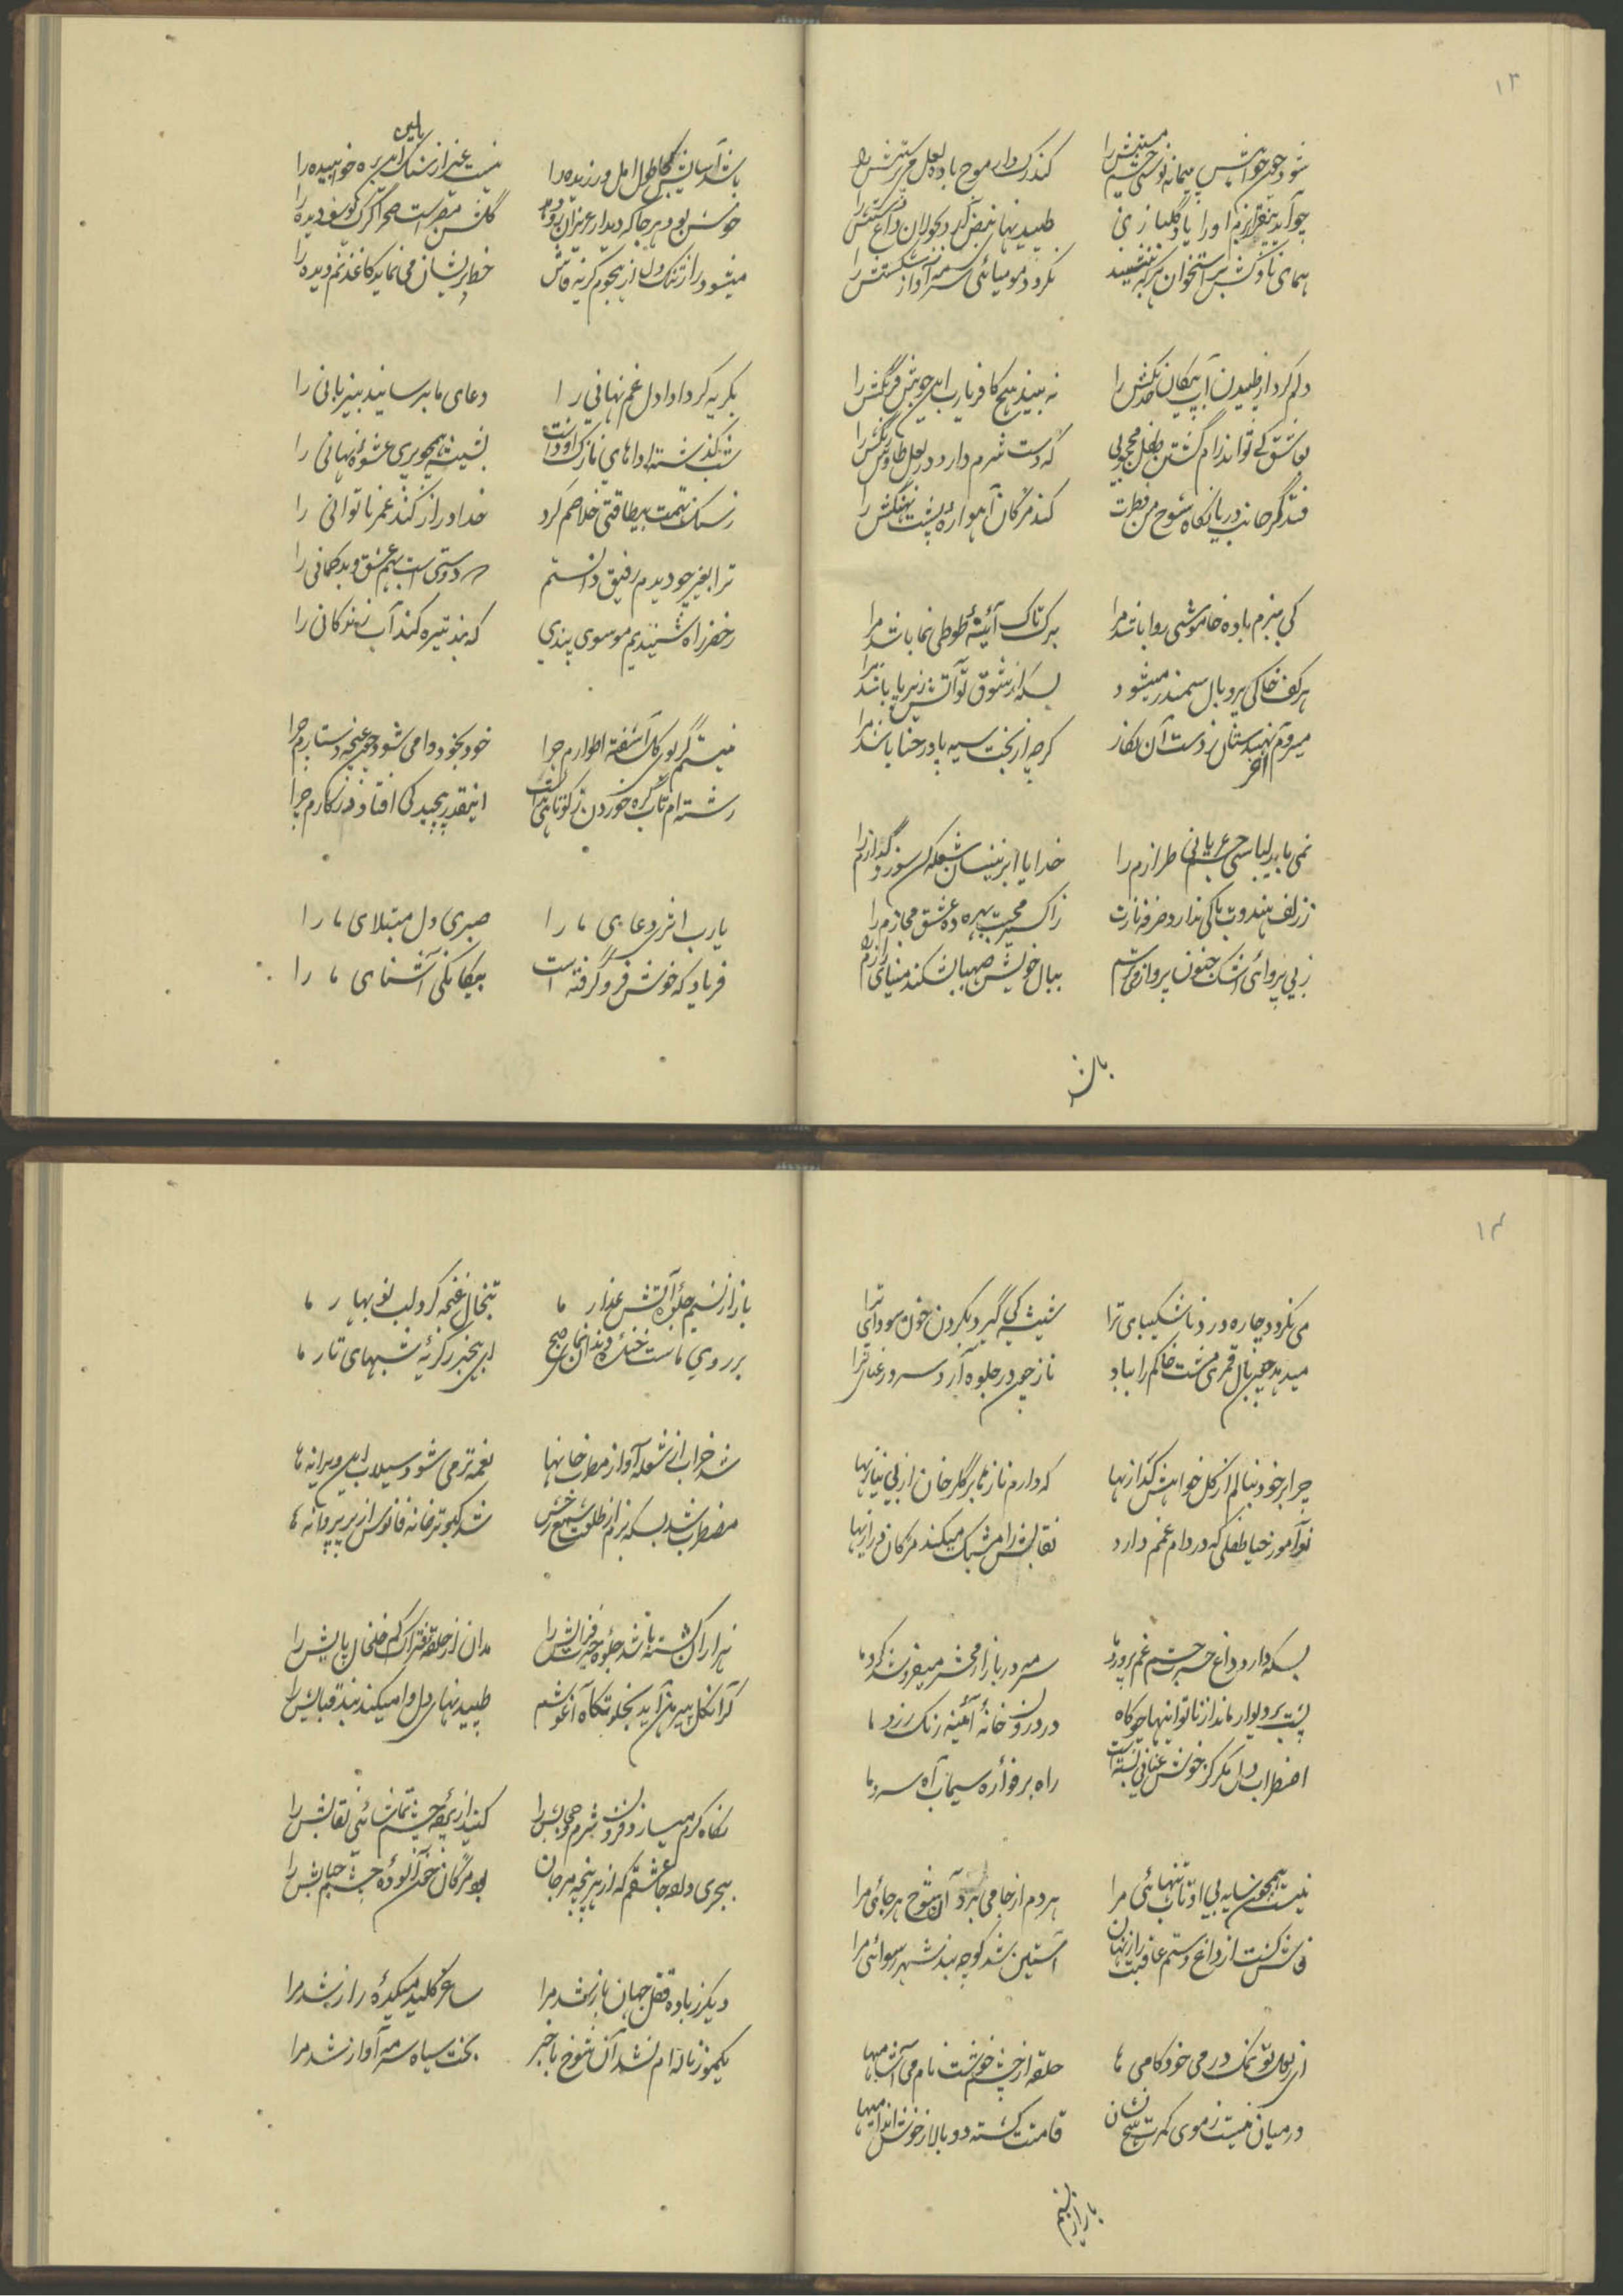 ۱۳
شود چون خواهش پیمانه نوشی چشم مستش را
کند رگ دار موج باده لعل می پرستش را
چو آید در نظر بزم او را یاد گلبازی
طپیدنهای نبض
همای ناوکش بر استخوان هرکه بنشیند
نگردد مومیائی سرمه آواز شکستش را
دلم کرد از طپیدن آب پیکان خدنگش را
نه بیند هیچ کافر یارب این چین فرنگش را
بعاشق کی تواند رام گشتن طفل محجوبی
که دست شرم دارد در بغل طاوس رنگش را
فتد گر جانب دریا نگاه شوخ من فطرت
کند مژگان آهو اره پشت نهنگش را
کی ببزم باده خاموشی روا باشد مرا
برگ تاک آئینه طوطی نما باشد مرا
هر کف خاکی پر و بال سمندر میشود
بسکه از شوق تو آتش زیر پا باشد مرا
میروم آخر بهندستان ز دست آن نگار
گرچه از بخت سیه پا در حنا باشد مرا
نمی باید لباسی جسم عریانی طرازم را
خدایا ابر نیسان شعله کن سوز و گدازم را
ز زلف هندوت باکی ندارد
ز اکسیر محبت بهره ده عشق مجازم را
ز بی پروائی اشک جنون پرواز
ببال خویش صهبا بشکند مینای رازم را
باشد
باشد آسایش کجا طول امل ورزیده را
نیست غیر از سنگ بالین این ره خوابیده را
خوش بود هر جا که دیدار عزیزان رو دهد
گلشن مصر است صحرا گرگ یوسف دیده را
میشود راز تنک دل از هجوم گریه فاش
خط پریشان می نماید کاغذ نم دیده را
بگریه کرد ادا دل غم نهانی را
دعای ما برسانید بیزبانی را
شب گذشته اداهای نازک او داشت
بشیشه همچو پری عشوه نهانی را
ز سنگ تهمت بیطاقتی خلاصم کرد
خدا دراز کند عمر ناتوانی را
ترا بغیر چو دیدم رفیق دانستم
که دوستی است بهم عشق و بدگمانی را
ز خضر راه شنیدیم موسوی پندی
که بند تیره کند آب زندگانی را
نیستم گر بوی گل آشفته اطوارم چرا
خودبخود وا می شود چون غنچه دستارم چرا
رشته ام تاب گره خوردن ز کوتاهی نداشت
اینقدر پیچیدگی افتاد در کارم چرا
یارب اثری دعای ما را
صبری دل مبتلای ما را
فریاد که خوش فرو گرفته است
بیگانگی آشنای ما را
۱۴
می نگردد چاره درد ناشکیبای ترا
شیشه کی گیرد بگردن خون سودای ترا
میدهد چون بال قمری مشت خاکم را بباد
ناز چون در جلوه آرد سرو رعنای ترا
چرا بر خود نبالم از گل خواهش گدازیها
که دارم نازها بر گلرخان از بی نیازیها
نوآموز حیا طفلی که در دام غمم دارد
نقابش را مشبک میکند مژگان درازیها
بسکه دارد داغ حسرت جسم غم پرورد ما
سرمه در بازار محشر میفروشد گرد ما
پشت بر دیوار ماند از ناتوانیها چو کاه
در درون خانه آئینه رنگ زرد ما
اضطراب دل مگر کز خویش غافل بسته است
راه بر فواره سیماب آه سرد ما
نیست همچون سایه بی او تاب تنهائی مرا
هر دم از جا می برد آن شوخ هر جائی مرا
فاش گشت از داغ دستم عاقبت راز نهان
آستین شد کوچه بند شهر رسوائی مرا
ای بوی تو نمک در می خودکامی ها
حلقه از چشم خوشت نام می آشامیها
در میان نیست ز موی کمرت هیچ نشان
قامتت گشته دو بالا ز خوش اندامیها
باز از نسیم
باز از نسیم جلوه آتش عذار ما
تبخال غنچه کرد لب نوبهار ما
بر روی ماست خنده دندان نمای صبح
ای بیخبر ز گریه شبهای تار ما
شد خراب از شعله آواز مطرب خانها
نغمه تر می شود سیلاب این ویرانه ها
مضطرب شد بسکه بزم از طلعت شمع رخش
شد کبوتر خانه فانوس از پر پروانه ها
نیز ار آن کشته باشد جلوه حیرت فزایش را
مدان از حلقه فتراک کم خلخال پایش را
گر آن گل پیرهن آید بخلوتگاه آغوشم
طپیدنهای دل وا میکند بند قبایش را
نگاه گرم میسازد فزون شرم حجابش را
کنید از پرده چشم تماشائی نقابش را
ببحری دل عاشقم که از هر پنجه مرجان
بود مژگان خون آلوده چشم حبابش را
دیگر ز باده قفل جهان باز شد مرا
ساغر کلید میکده راز شد مرا
یکمو ز ناله ام نشد آن شوخ باخبر
بخت سیاه سرمه آواز شد مرا